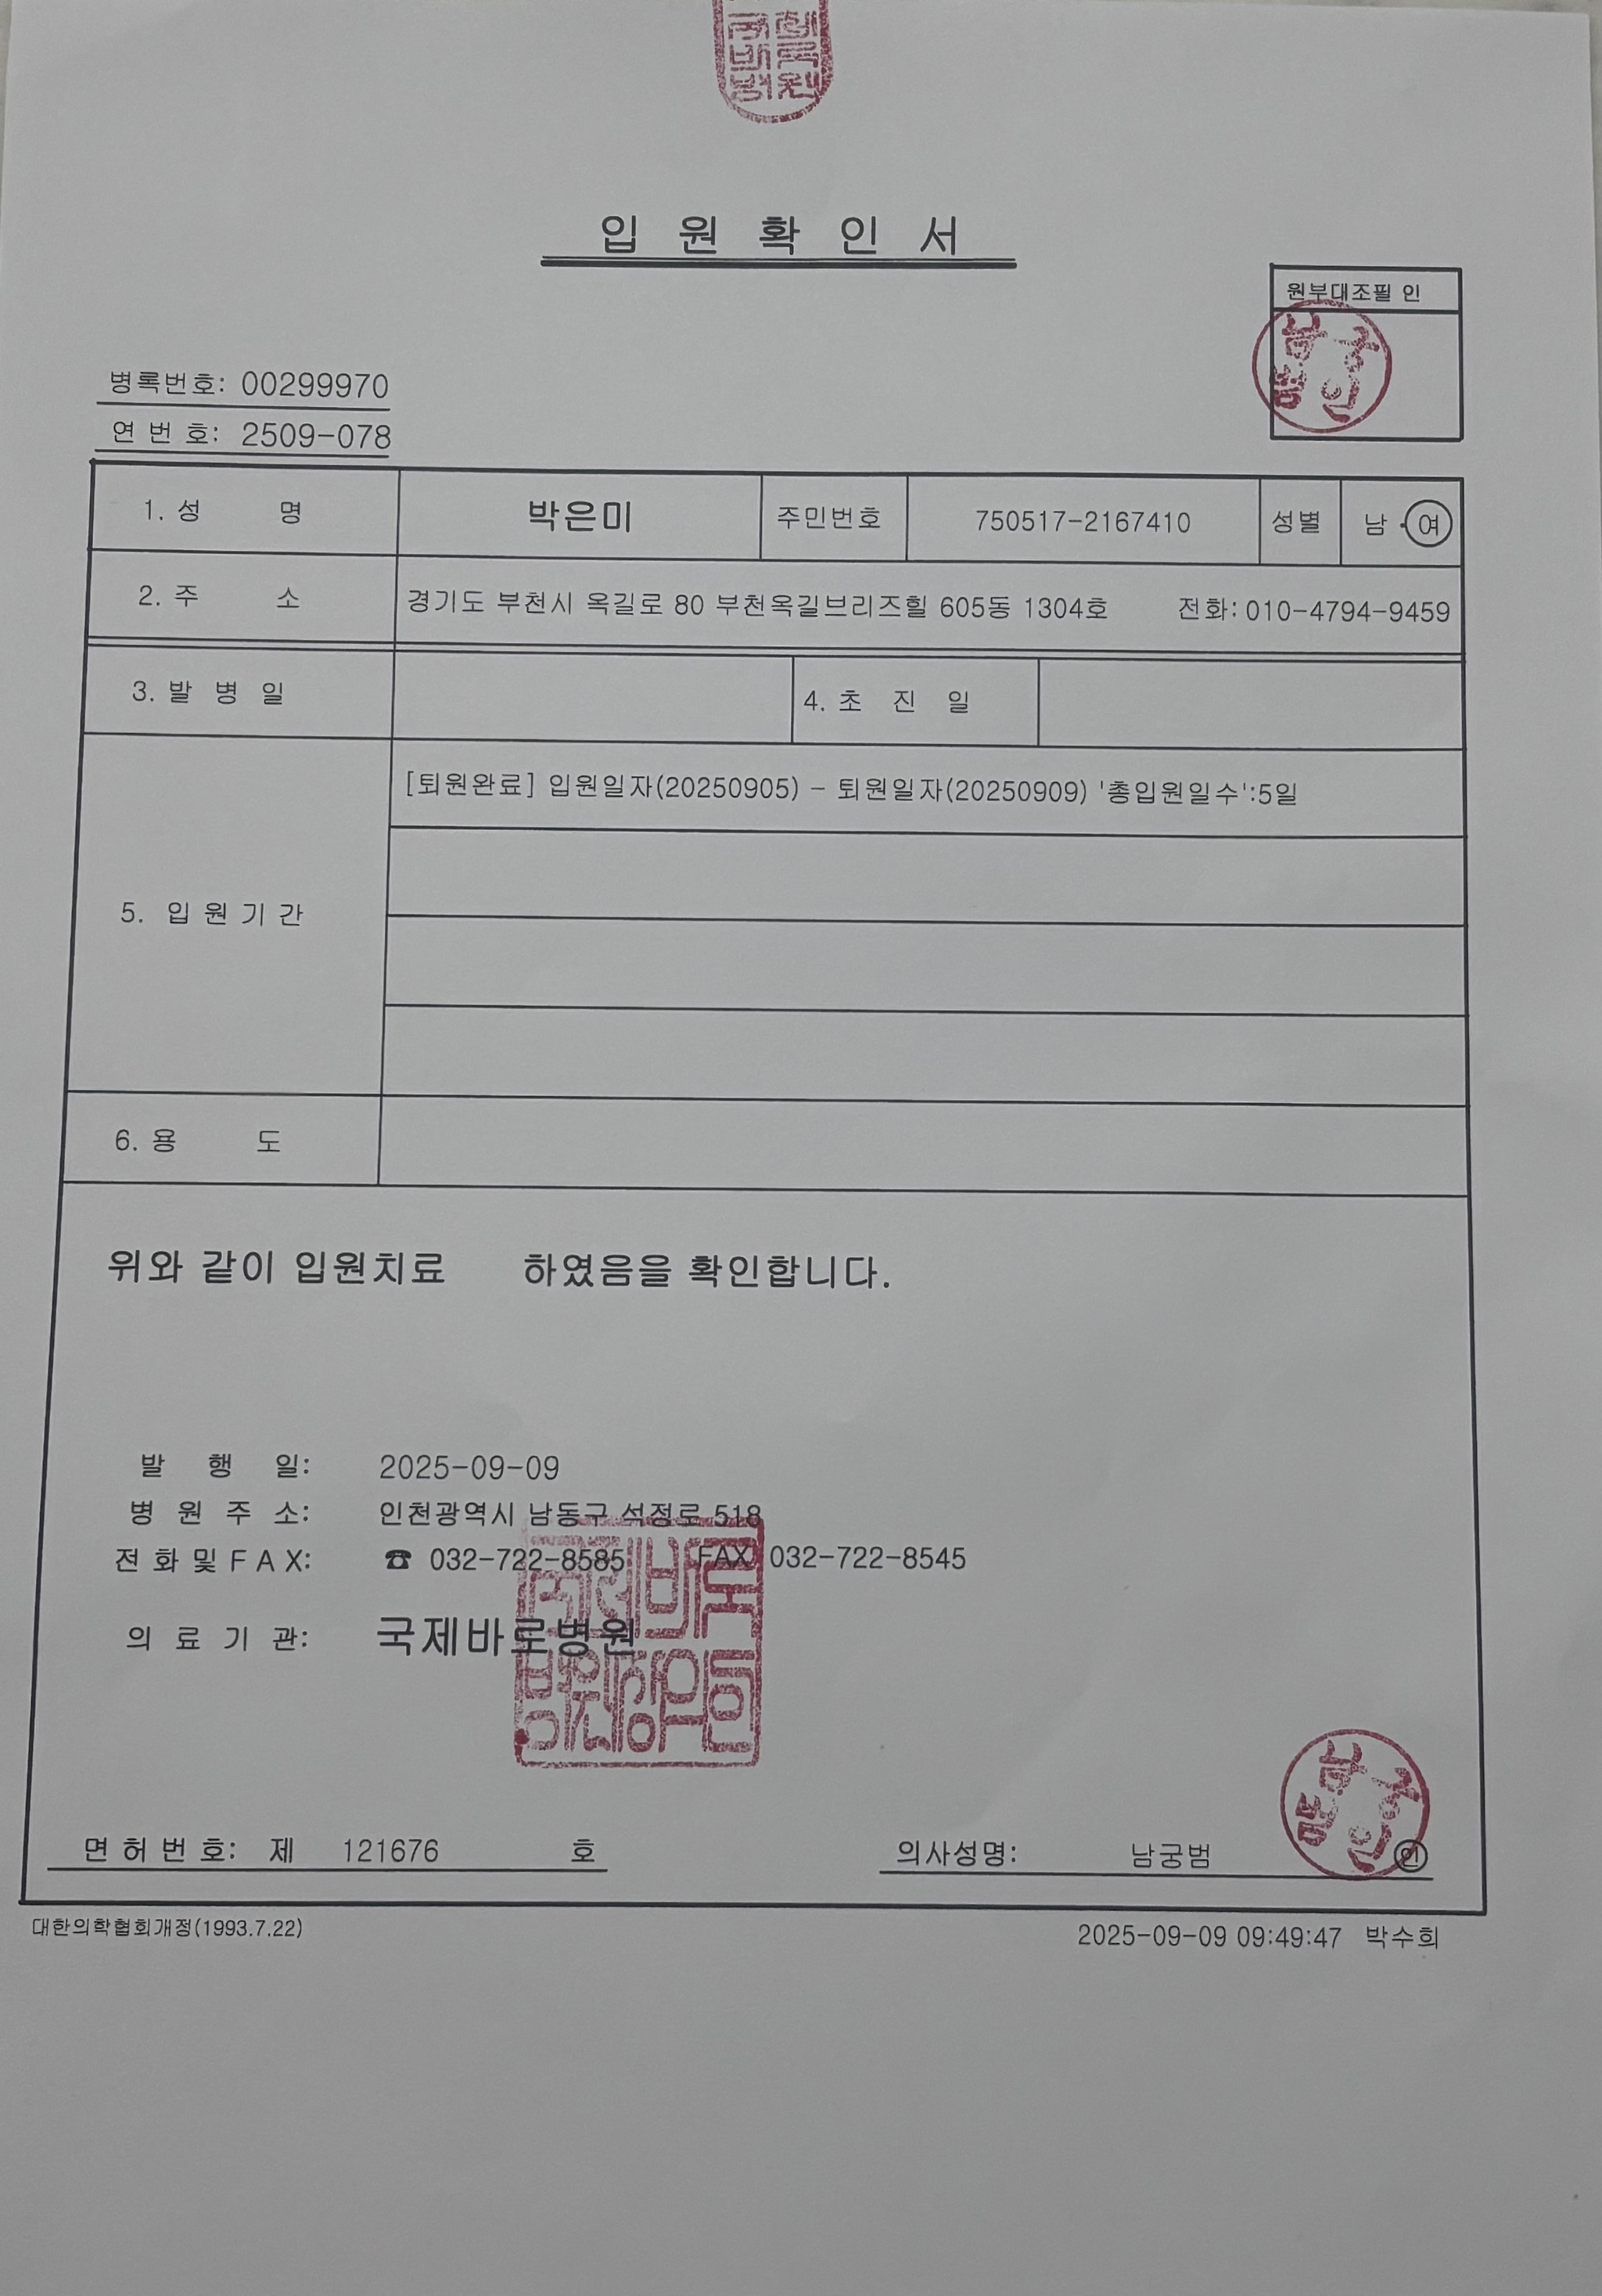 입 원 확 인 서
원부대조필 인
병록번호: 00299970
연 번 호: 2509-078
1. 성 명 박은미 주민번호 750517-2167410 성별 남 · 여
2. 주 소 경기도 부천시 옥길로 80 부천옥길브리즈힐 605동 1304호 전화: 010-4794-9459
3. 발 병 일 4. 초 진 일
[퇴원완료] 입원일자(20250905) - 퇴원일자(20250909) '총입원일수':5일
5. 입 원 기 간
6. 용 도
위와 같이 입원치료 하였음을 확인합니다.
발 행 일: 2025-09-09
병 원 주 소: 인천광역시 남동구 석정로 518
전 화 및 F A X: ☎ 032-722-8585 FAX 032-722-8545
의 료 기 관: 국제바로병원
면 허 번 호: 제 121676 호 의사성명: 남궁범 인
대한의학협회개정(1993.7.22) 2025-09-09 09:49:47 박수희